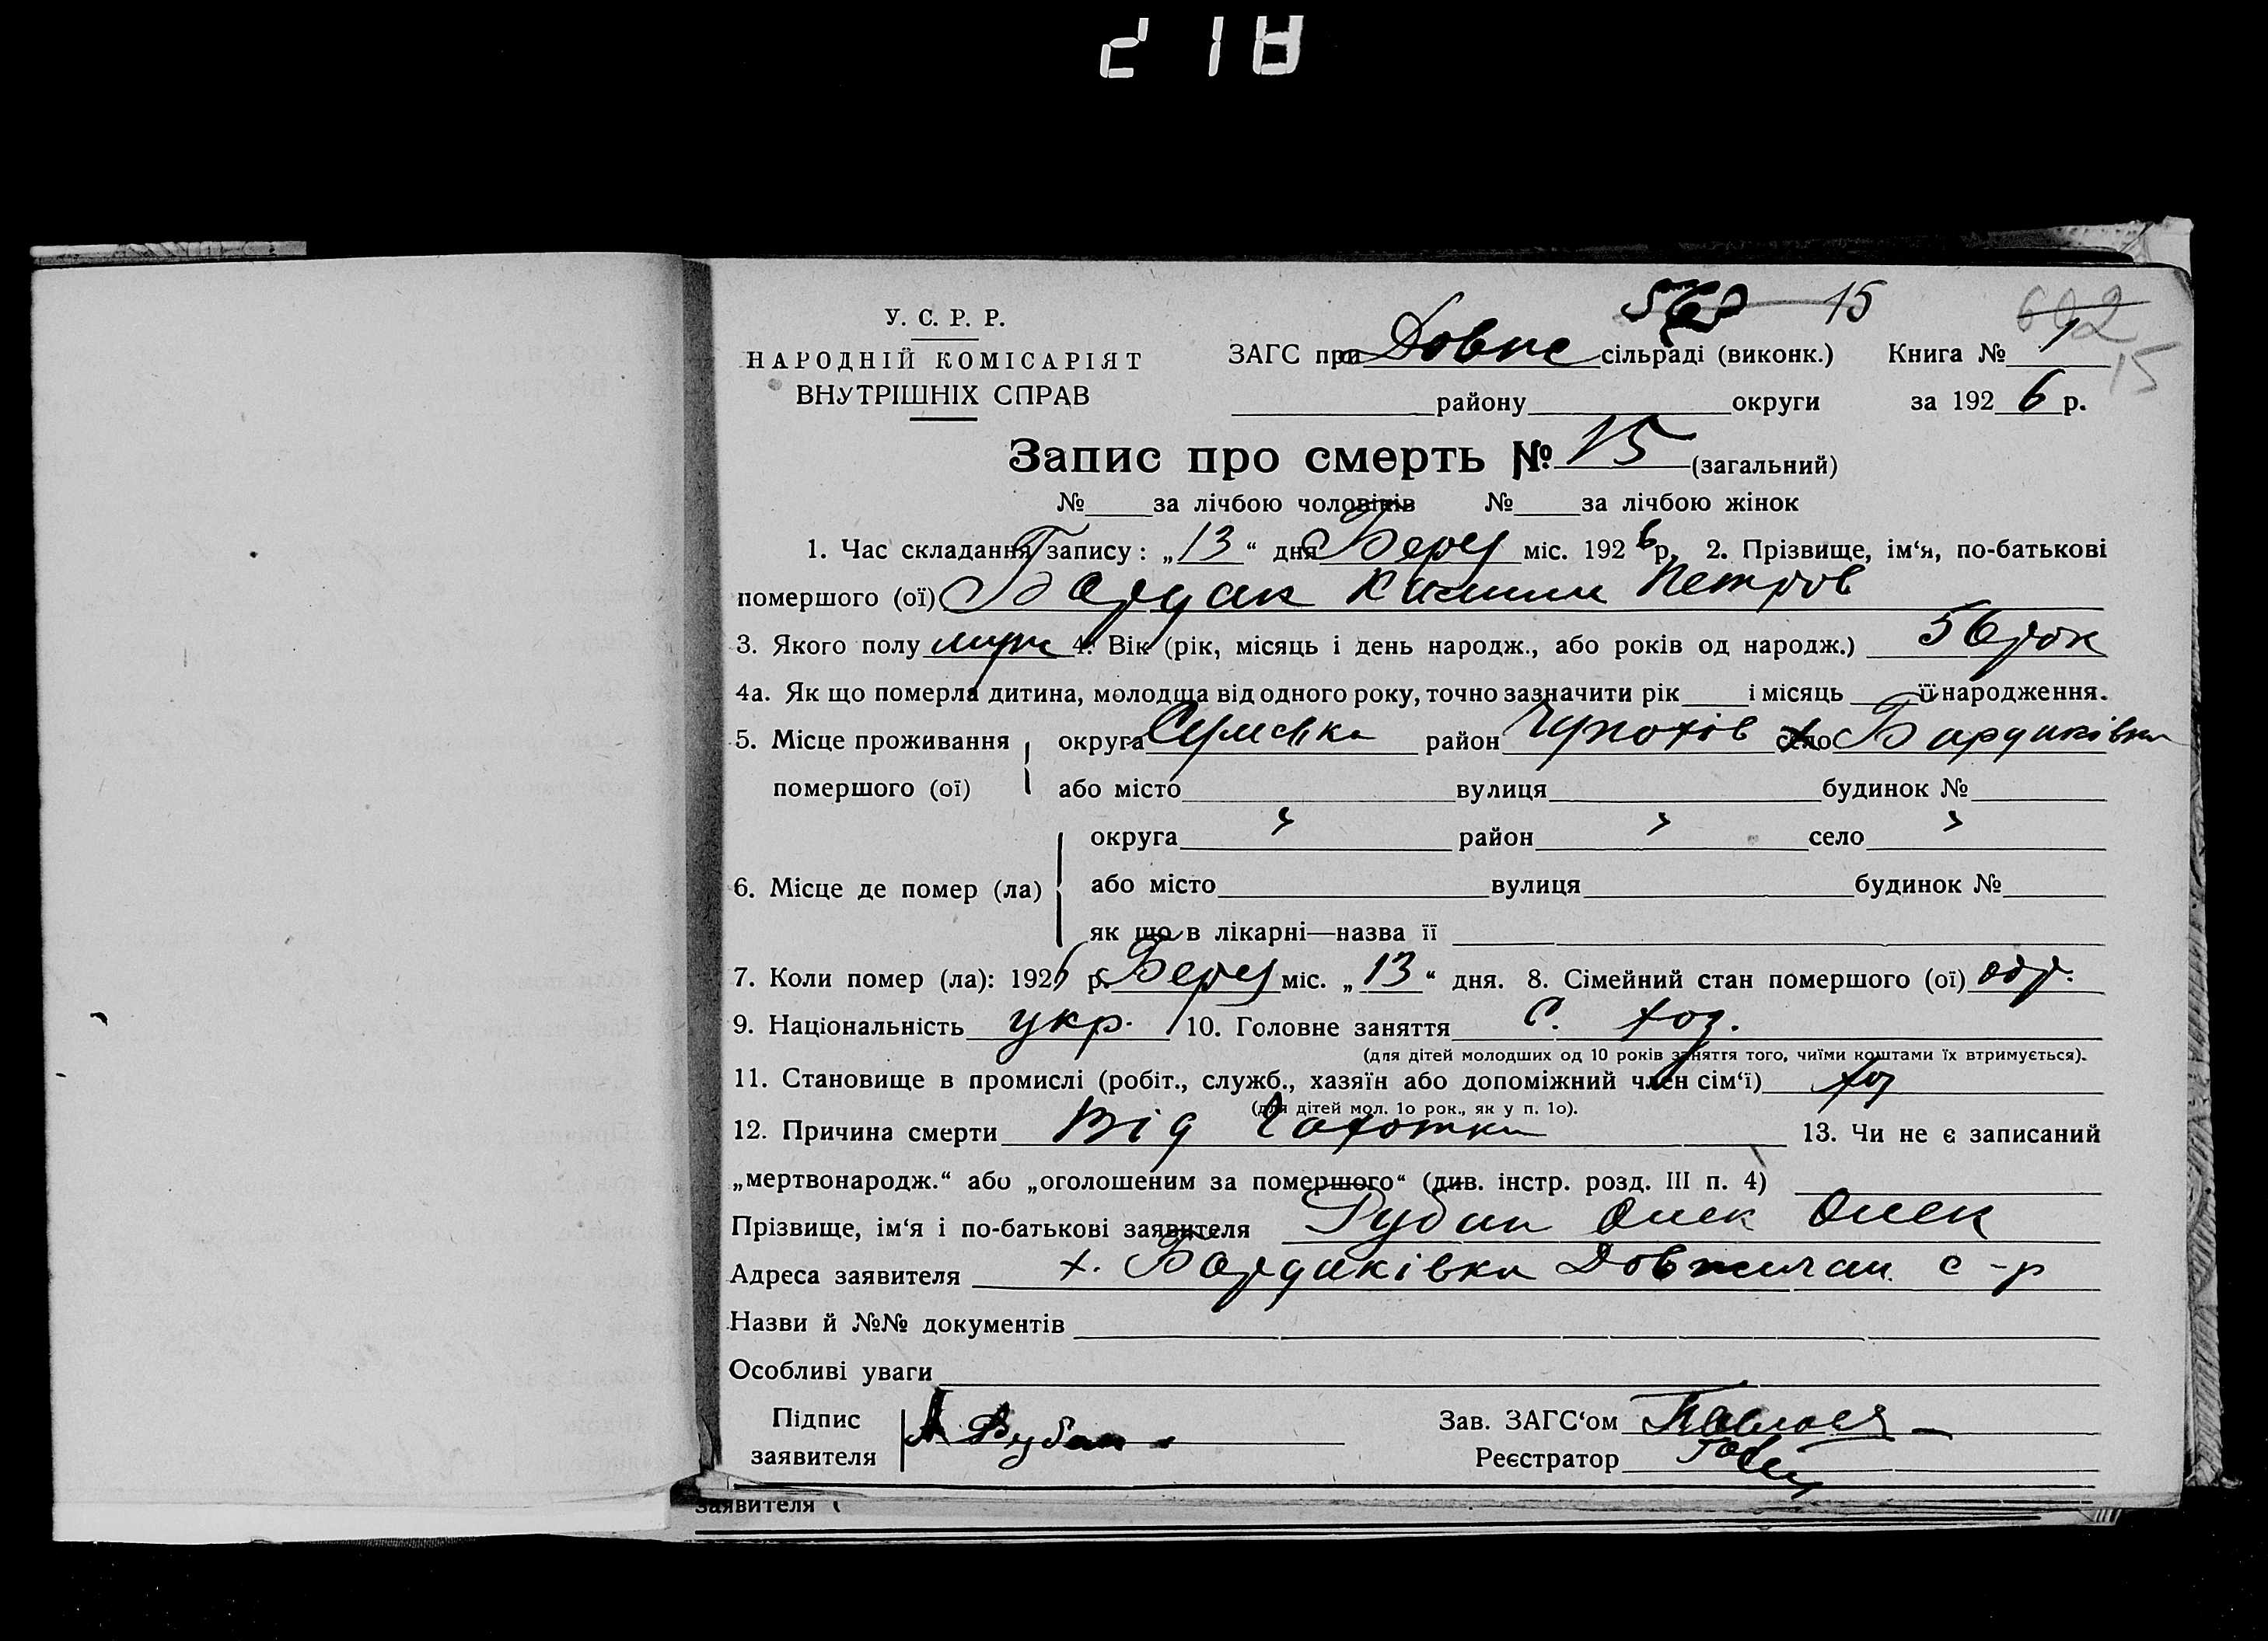 218
У. С. Р. Р.
НАРОДНІЙ КОМІСАРІЯТ
ВНУТРІШНІХ СПРАВ
15
ЗАГС при Довже сільраді (виконк.) Книга № 1
602
15
району округи за 1926 р.
Запис про смерть № 15 (загальний)
№ за лічбою чоловіків № за лічбою жінок
1. Час складання запису: „13“ дня Берез міс. 1926 р. 2. Прізвище, ім‘я, по-батькові
помершого (ої) Бардак Петров
3. Якого полу муж 4. Вік (рік, місяць і день народж., або років од народж.) 56 рок
4а. Як що померла дитина, молодща від одного року, точно зазначити рік і місяць її народження.
5. Місце проживання округа Сумська район село х Бардаківка
помершого (ої) або місто вулиця будинок №
округа " район " село "
6. Місце де помер (ла) або місто вулиця будинок №
як що в лікарні—назва її
7. Коли помер (ла): 1926 р. Берез міс. „13“ дня. 8. Сімейний стан помершого (ої) одр.
9. Національність укр. 10. Головне заняття с. хоз.
(для дітей молодших од 10 років заняття того, чиїми коштами їх втримується).
11. Становище в промислі (робіт., служб., хазяїн або допоміжний член сім‘ї) хоз
(для дітей мол. 1о рок., як у п. 1о).
12. Причина смерти Від Чахотки 13. Чи не є записаний
„мертвонародж.“ або „оголошеним за помершого“ (див. інстр. розд. III п. 4)
Прізвище, ім‘я і по-батькові заявителя Рубан Олек Олек
Адреса заявителя х. Бардаківка Довжичан. с-р
Назви й №№ документів
Особливі уваги
Підпис Зав. ЗАГС‘ом
заявителя А Рубан Реєстратор
заявителя (